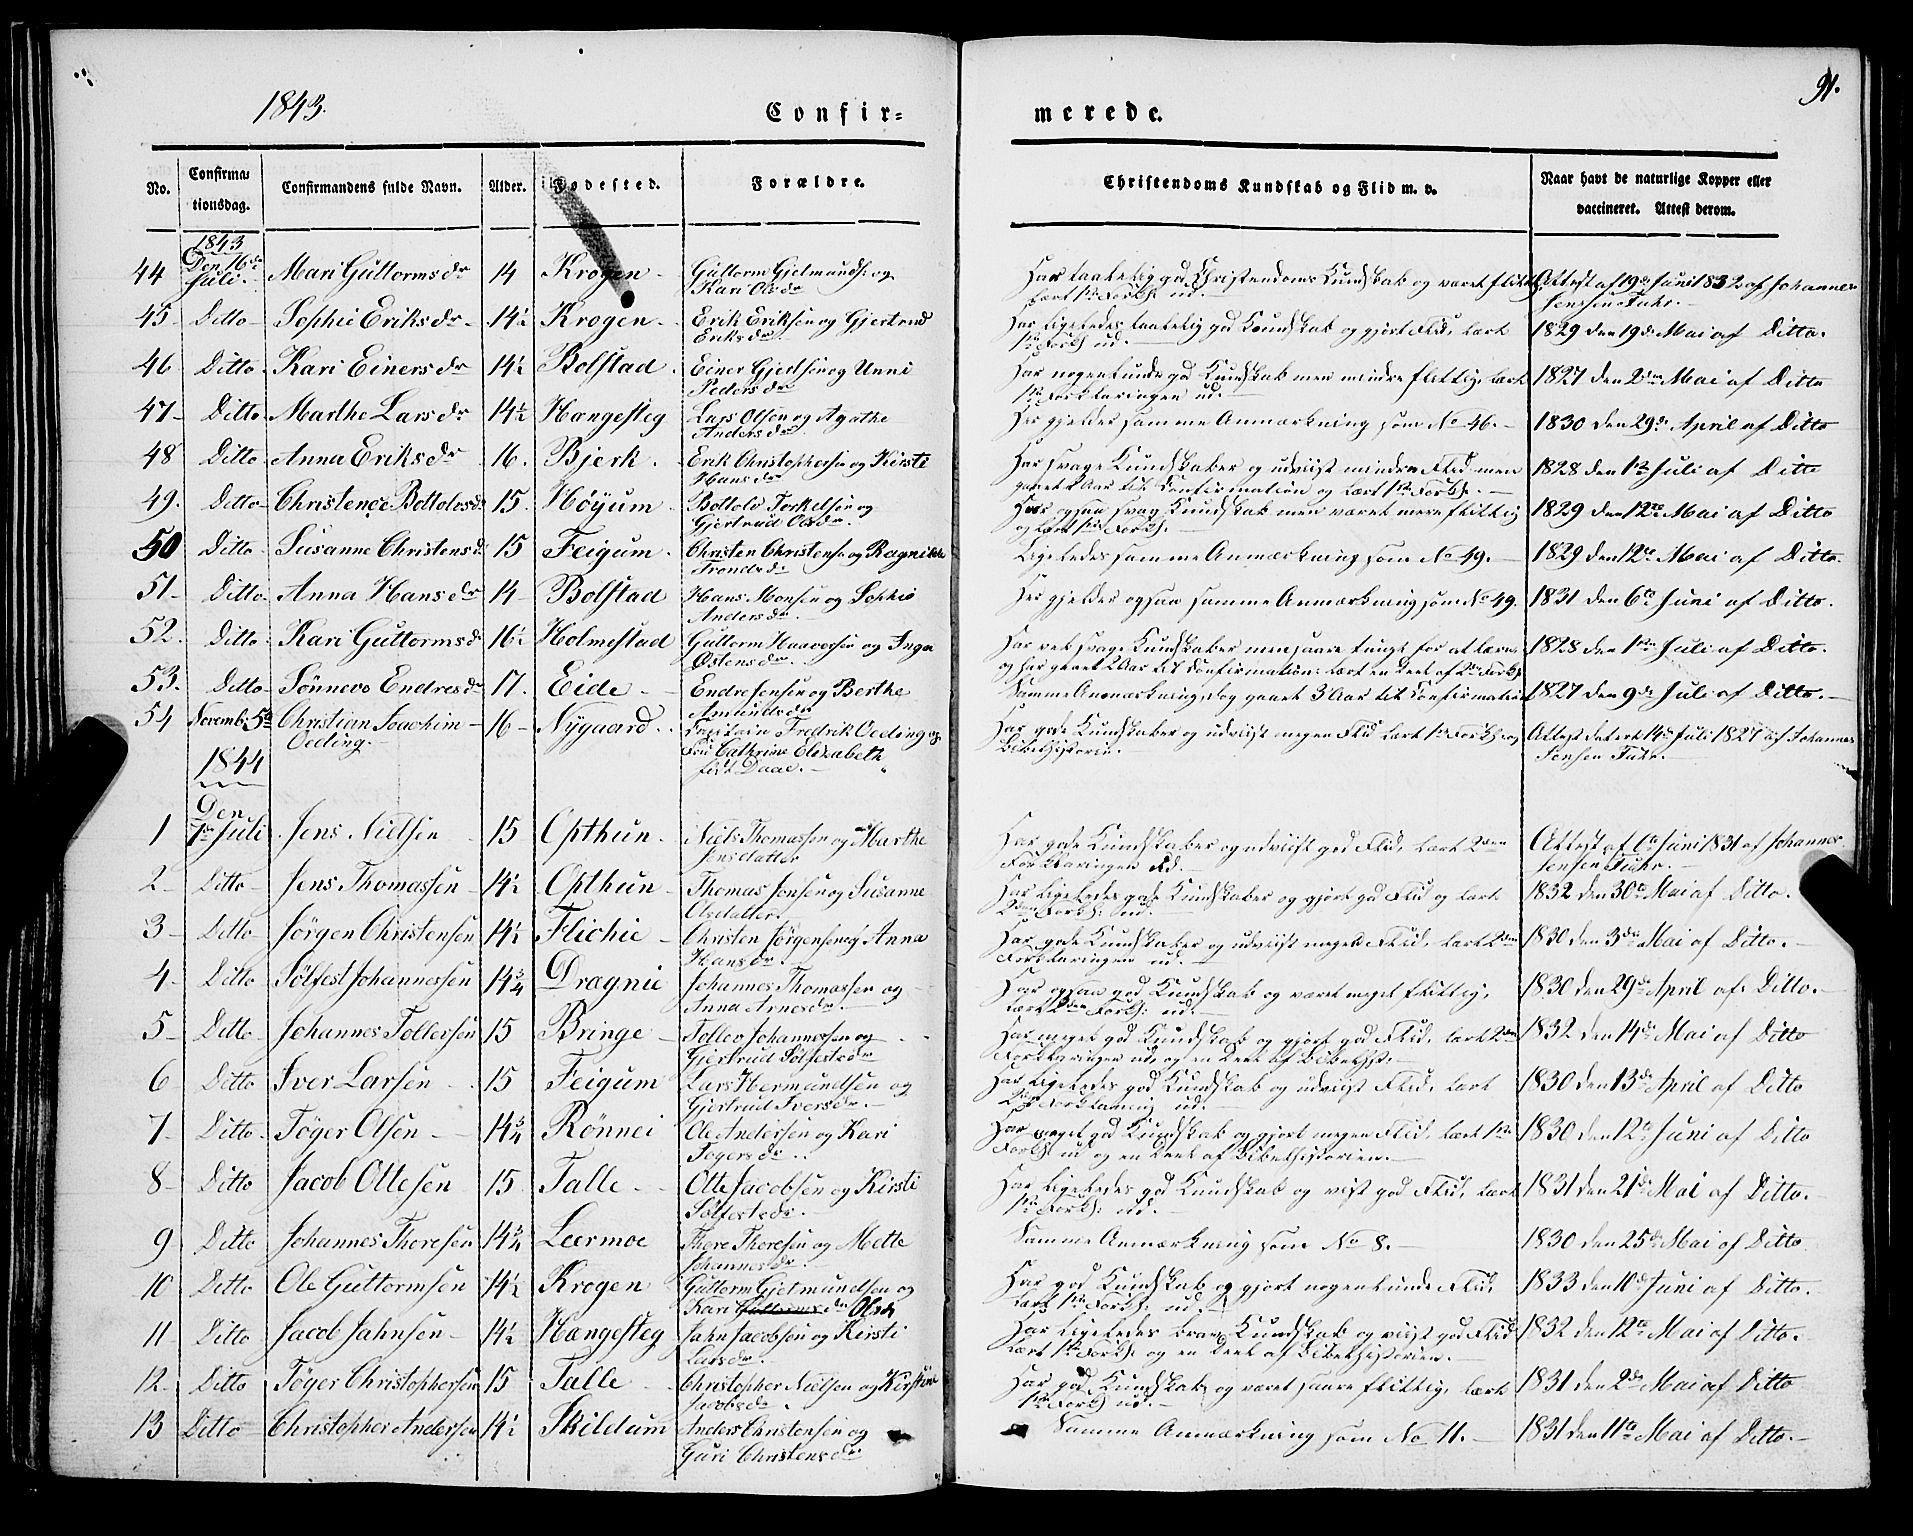 91.
1843.
Confir=
merede.
No. Confirma= tionsdag. Confirmandens fulde Navn. Alder. Fødested. Forældre. Christendoms Kundskab og Flid m. v. Naar havt de naturlige Kopper eller vaccineret. Attest derom.
1843
44 Den 16de Juli. Mari Guttormsdr 14 Krogen Guttorm Gjelmundsen og Kari Olsdr Har taalelig god Christendoms Kundskab og været flittig lært 1ste Forkl: ud. Attest af 19de Juni 1832 af Johannes Jensen Fuhr.
45 Ditto Sophie Eriksdr 14½ Krogen Erik Eriksen og Gjertrud Eriksdr Har ligeledes taalelig god Kundskab og gjort Flid, lært 1ste Forkl: ud. 1829 den 19de Mai af Ditto.
46 Ditto Kari Einersdr 14½ Bolstad Einer Gjertsen og Unni Pedersdr Har nogenlunde god Kundskab men mindre flittig, lært 1ste Forklaringen ud. 1827 den 2den Mai af Ditto
47 Ditto Marthe Larsdr 14½ Hængesteg Lars Olsen og Agathe Andersdr Her gjelder samme Anmærkning som No 46. 1830 den 29de April af Ditto
48 Ditto Anna Eriksdr 16. Bjerk. Erik Christophersen og Kirsti Hansdr Har svage Kundskaber og udviist mindre Flid men gaaet 2 Aar til Confirmation og lært 1ste Forkl: 1828 den 1ste Juli af Ditto
49. Ditto Christence Bottolvsdr 15. Høyum Bottolv Torkelsen og Gjertrud Olsdr. Har ogsaa svag Kundskab men været mere flittig og lært 1ste Forkl: 1829 den 12te Mai af Ditto
50 Ditto Susanne Christensdr 15 Feigum Christen Christensen og Ragnilde Trondsdr Ligeledes samme Anmærkning som No 49. 1829 den 12te Mai af Ditto.
51 Ditto Anna Hansdr 14 Bolstad Hans Monsen og Sophie Andersdr. Her gjelder ogsaa samme Anmærkning som No 49. 1831 den 6te Juni af Ditto.
52. Ditto Kari Guttormsdr 16½ Holmestad Guttorm Haavorsen og Inga Østensdr. Har vel svage Kundskaber men saare tungt for at lære og har gaaet 2 Aar til Confirmation: lært en Deel af 2den Forkl: 1828 den 1ste Juli af Ditto.
53. Ditto Sønneve Endresdr 17. Eide Endre Jensen og Berthe Amundsdr Samme Anmærkning, dog gaaet 3 Aar til Confirmation 1827 den 9de Juli af Ditto.
54 Novemb: 5te Christian Joachim Oeding. 16 Nygaard. Fredrik Oeding og Cathrine Elizabeth født Daae. Har gode Kundskaber og udviist megen Flid lært 1ste Forkl: og Bibelhistorie. Attest dateret 14de Juli 1827 af Johannes Jensen Fuhr.
1844
1 Den 7de Juli Jens Nielsen 15 Opthun. Niels Thomassen og Marthe Jensdatter Har gode Kundskaber og udviist god Flid, lært 2den Forklaringen ud. Attest af 6te Juni 1831 af Johannes Jensen Fuhr.
2 Ditto Jens Thomassen 14½ Opthun Thomas Jensen og Susanne Olsdatter Har ligeledes gode Kundskaber og gjort god Flid og lært 2den Forkl: ud. 1832 den 30te Mai af Ditto.
3 Ditto Jørgen Christensen 14½ Flichie Christen Jørgensen og Anna Hansdr. Har gode Kundskaber og udviist meget Flid, lært 2den Forklaringen ud. 1830 den 3die Mai af Ditto.
4 Ditto Sølfest Johannessen 14¾ Drægnie Johannes Thomassen og Anna Arnesdr. Har ogsaa god Kundskab og været meget flittig, lært 2den Forkl: ud. 1830 den 29de April af Ditto.
5 Ditto Johannes Tollersen 15 Bringe Tollev Johannessen og Gjertrud Sølfestsdr Har meget god Kundskab og gjort god Flid, lært 2den Forklaringen ud, og en Deel af Bibelhist: 1832 den 14de Mai af Ditto
6 Ditto Iver Larsen 15 Feigum Lars Hermundsen og Gjertrud Iversdr. Har ligeledes god Kundskab og udviist Flid, lært 2den Forklaring ud. 1830 den 13de April af Ditto
7 Ditto Tøger Olsen 14¾ Rønnei Ole Andersen og Kari Togersdr. Har meget god Kundskab og gjort megen Flid, lært 1ste Forkl: ud og en Deel af Bibelhistorien. 1830 den 12te Juni af Ditto
8 Ditto Jacob Ottesen 15 Talle Otte Jacobsen og Kirsti Sølfestsdr. Har ligeledes god Kundskab og viist god Flid, lært 1ste Forkl: ud. 1831 den 21de Mai af Ditto.
9 Ditto Johannes Thoresen 14¾ Leermoe Thore Thoresen og Mette Johannesdr. Samme Anmærkning som No 8. 1830 den 25de Mai af Ditto
10 Ditto Ole Guttormsen 14½ Krogen Guttorm Gjelmundsen og Kari Guttormsdr Olsdr Har god Kundskab og gjort nogenlunde Flid, lært 1ste Forkl: ud. 1833 den 10de Juni af Ditto.
11 Ditto Jacob Jahnsen 14½ Hængesteg Jahn Jacobsen og Kirsti Larsdr. Har ligeledes brav Kundskab og viist god Flid lært 1ste Forkl: og en Deel af Bibelhistorien. 1832 den 12te Mai af Ditto.
12. Ditto Tøger Christophersen 15 Talle Christopher Nielsen og Kirstine Jacobsdr. Har god Kundskab og været saare flittig, lært 1ste Forkl: ud. 1831 den 2den Mai af Ditto
13 Ditto Christopher Andersen 14½ Skildum Anders Christensen og Guri Christensdr Samme Anmærkning som No 11. 1831 den 11te Mai af Ditto.